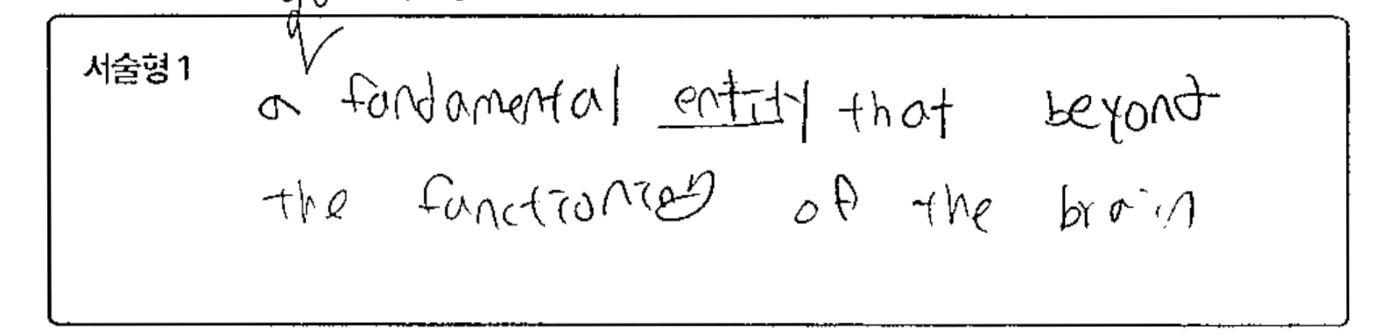 서술형 1
a fondamental entity that beyond
the functioning of the brain